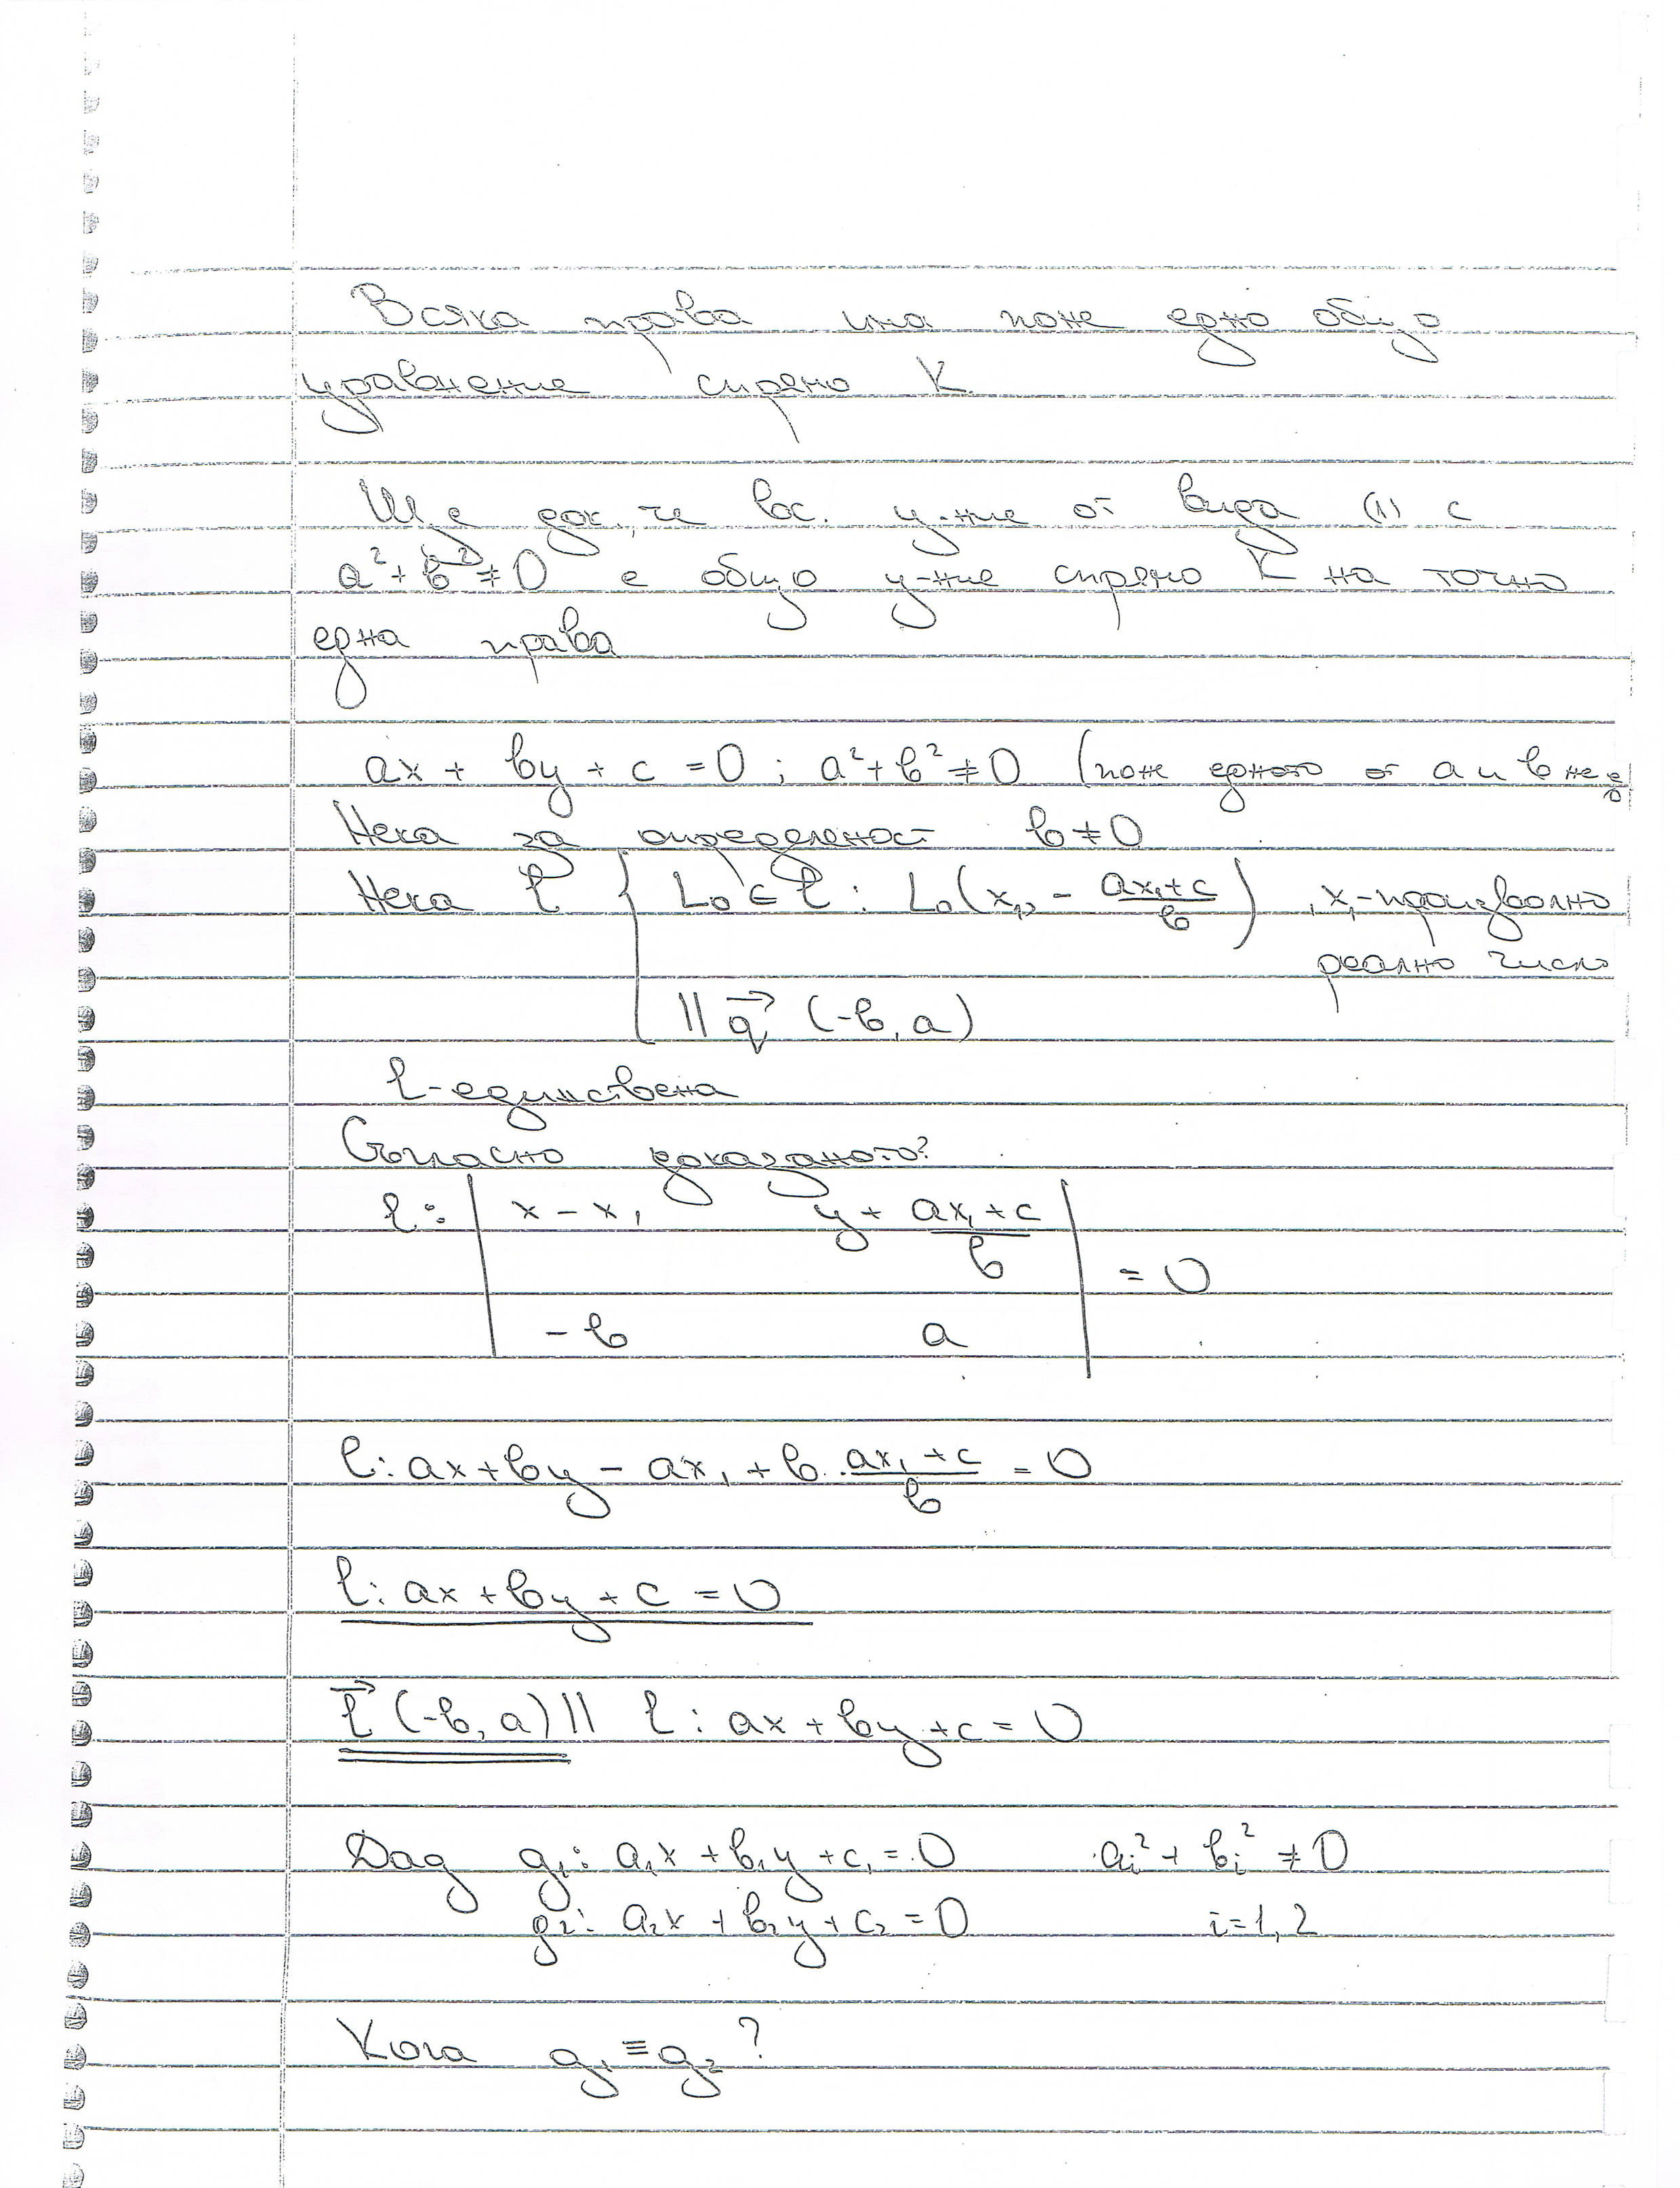 Всяка права има поне едно общо
уравнение спрямо K
Ще док, че вс. у-ние от вида (1) с
a² + b² ≠ 0 е общо у-ние спрямо K на точно
една права
ax + by + c = 0 ; a² + b² ≠ 0 (поне едното от a и b не е 0
Нека за определеност b ≠ 0
Нека l { L₀ ∈ l : L₀(x₁, - (ax₁+c)/b) , x₁-произволно
реално число
|| q⃗ (-b, a)
l-единствена
Съгласно доказаното?
l: | x - x₁ y + (ax₁ + c)/b |
= 0
| -b a |
l: ax + by - ax₁ + b . (ax₁ + c)/b = 0
l: ax + by + c = 0
l⃗ (-b, a) || l : ax + by + c = 0
Дад g₁: a₁x + b₁y + c₁ = 0 aᵢ² + bᵢ² ≠ 0
g₂: a₂x + b₂y + c₂ = 0 i = 1, 2
Кога g₁ ≡ g₂ ?